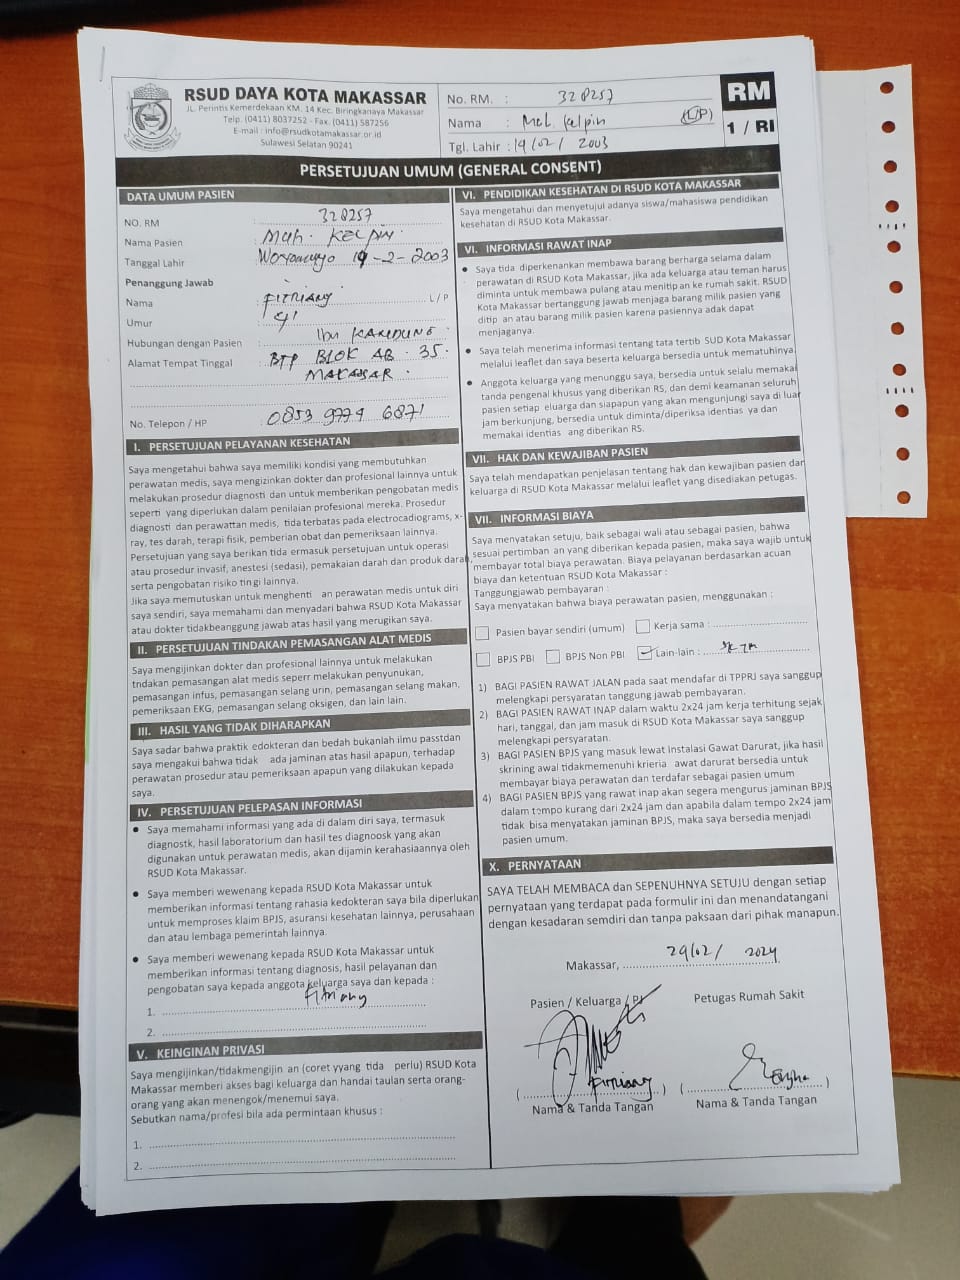 RSUD DAYA KOTA MAKASSAR
JL. Perintis Kemerdekaan KM. 14 Kec. Biringkanaya Makassar
Telp. (0411) 8037252 - Fax. (0411) 587256
E-mail : info@rsudkotamakassar.or.id
Sulawesi Selatan 90241
No. RM. : 328257
Nama : Muh. Kelpin (L/P)
Tgl. Lahir : 19/02/ 2003
RM
1 / RI
PERSETUJUAN UMUM (GENERAL CONSENT)
DATA UMUM PASIEN
NO. RM : 328257
Nama Pasien : Muh. KELPIN
Tanggal Lahir : 19-2-2003
Penanggung Jawab
Nama : FITRIANY L / P
Umur : 41
Hubungan dengan Pasien : Ibu KANDUNG
Alamat Tempat Tinggal : BTP BLOK AB. 35.
MAKASSAR.
No. Telepon / HP : 0853 9779 6871
I. PERSETUJUAN PELAYANAN KESEHATAN
Saya mengetahui bahwa saya memiliki kondisi yang membutuhkan
perawatan medis, saya mengizinkan dokter dan profesional lainnya untuk
melakukan prosedur diagnosti dan untuk memberikan pengobatan medis
seperti yang diperlukan dalam penilaian profesional mereka. Prosedur
diagnosti dan perawattan medis, tida terbatas pada electrocadiograms, x-
ray, tes darah, terapi fisik, pemberian obat dan pemeriksaan lainnya.
Persetujuan yang saya berikan tida ermasuk persetujuan untuk operasi
atau prosedur invasif, anestesi (sedasi), pemakaian darah dan produk darah,
serta pengobatan risiko tin gi lainnya.
Jika saya memutuskan untuk menghenti an perawatan medis untuk diri
saya sendiri, saya memahami dan menyadari bahwa RSUD Kota Makassar
atau dokter tidakbeanggung jawab atas hasil yang merugikan saya.
II. PERSETUJUAN TINDAKAN PEMASANGAN ALAT MEDIS
Saya mengijinkan dokter dan profesional lainnya untuk melakukan
tndakan pemasangan alat medis seperr melakukan penyunukan,
pemasangan infus, pemasangan selang urin, pemasangan selang makan,
pemeriksaan EKG, pemasangan selang oksigen, dan lain lain.
III. HASIL YANG TIDAK DIHARAPKAN
Saya sadar bahwa praktik edokteran dan bedah bukanlah ilmu passtdan
saya mengakui bahwa tidak ada jaminan atas hasil apapun, terhadap
perawatan prosedur atau pemeriksaan apapun yang dilakukan kepada
saya.
IV. PERSETUJUAN PELEPASAN INFORMASI
• Saya memahami informasi yang ada di dalam diri saya, termasuk
diagnostk, hasil laboratorium dan hasil tes diagnoosk yang akan
digunakan untuk perawatan medis, akan dijamin kerahasiaannya oleh
RSUD Kota Makassar.
• Saya memberi wewenang kepada RSUD Kota Makassar untuk
memberikan informasi tentang rahasia kedokteran saya bila diperlukan
untuk memproses klaim BPJS, asuransi kesehatan lainnya, perusahaan
dan atau lembaga pemerintah lainnya.
• Saya memberi wewenang kepada RSUD Kota Makassar untuk
memberikan informasi tentang diagnosis, hasil pelayanan dan
pengobatan saya kepada anggota keluarga saya dan kepada :
1. Fitriany
2.
V. KEINGINAN PRIVASI
Saya mengijinkan/tidakmengijin an (coret yyang tida perlu) RSUD Kota
Makassar memberi akses bagi keluarga dan handai taulan serta orang-
orang yang akan menengok/menemui saya.
Sebutkan nama/profesi bila ada permintaan khusus :
1.
2.
VI. PENDIDIKAN KESEHATAN DI RSUD KOTA MAKASSAR
Saya mengetahui dan menyetujui adanya siswa/mahasiswa pendidikan
kesehatan di RSUD Kota Makassar.
VI. INFORMASI RAWAT INAP
• Saya tida diperkenankan membawa barang berharga selama dalam
perawatan di RSUD Kota Makassar, jika ada keluarga atau teman harus
diminta untuk membawa pulang atau menitip an ke rumah sakit. RSUD
Kota Makassar bertanggung jawab menjaga barang milik pasien yang
ditip an atau barang milik pasien karena pasiennya adak dapat
menjaganya.
• Saya telah menerima informasi tentang tata tertib SUD Kota Makassar
melalui leaflet dan saya beserta keluarga bersedia untuk mematuhinya
• Anggota keluarga yang menunggu saya, bersedia untuk selalu memakai
tanda pengenal khusus yang diberikan RS, dan demi keamanan seluruh
pasien setiap eluarga dan siapapun yang akan mengunjungi saya di luar
jam berkunjung, bersedia untuk diminta/diperiksa identias ya dan
memakai identias ang diberikan RS.
VII. HAK DAN KEWAJIBAN PASIEN
Saya telah mendapatkan penjelasan tentang hak dan kewajiban pasien dan
keluarga di RSUD Kota Makassar melalui leaflet yang disediakan petugas.
VII. INFORMASI BIAYA
Saya menyatakan setuju, baik sebagai wali atau sebagai pasien, bahwa
sesuai pertimban an yang diberikan kepada pasien, maka saya wajib untuk
membayar total biaya perawatan. Biaya pelayanan berdasarkan acuan
biaya dan ketentuan RSUD Kota Makassar :
Tanggungjawab pembayaran :
Saya menyatakan bahwa biaya perawatan pasien, menggunakan :
Pasien bayar sendiri (umum) Kerja sama :
BPJS PBI BPJS Non PBI Lain-lain :
1) BAGI PASIEN RAWAT JALAN pada saat mendafar di TPPRJ saya sanggup
melengkapi persyaratan tanggung jawab pembayaran.
2) BAGI PASIEN RAWAT INAP dalam waktu 2x24 jam kerja terhitung sejak
hari, tanggal, dan jam masuk di RSUD Kota Makassar saya sanggup
melengkapi persyaratan.
3) BAGI PASIEN BPJS yang masuk lewat Instalasi Gawat Darurat, jika hasil
skrining awal tidakmemenuhi krieria awat darurat bersedia untuk
membayar biaya perawatan dan terdafar sebagai pasien umum
4) BAGI PASIEN BPJS yang rawat inap akan segera mengurus jaminan BPJS
dalam tempo kurang dari 2x24 jam dan apabila dalam tempo 2x24 jam
tidak bisa menyatakan jaminan BPJS, maka saya bersedia menjadi
pasien umum.
X. PERNYATAAN
SAYA TELAH MEMBACA dan SEPENUHNYA SETUJU dengan setiap
pernyataan yang terdapat pada formulir ini dan menandatangani
dengan kesadaran semdiri dan tanpa paksaan dari pihak manapun.
Makassar, 29/02/ 2024
Pasien / Keluarga / PJ Petugas Rumah Sakit
( Fitriany ) ( )
Nama & Tanda Tangan Nama & Tanda Tangan